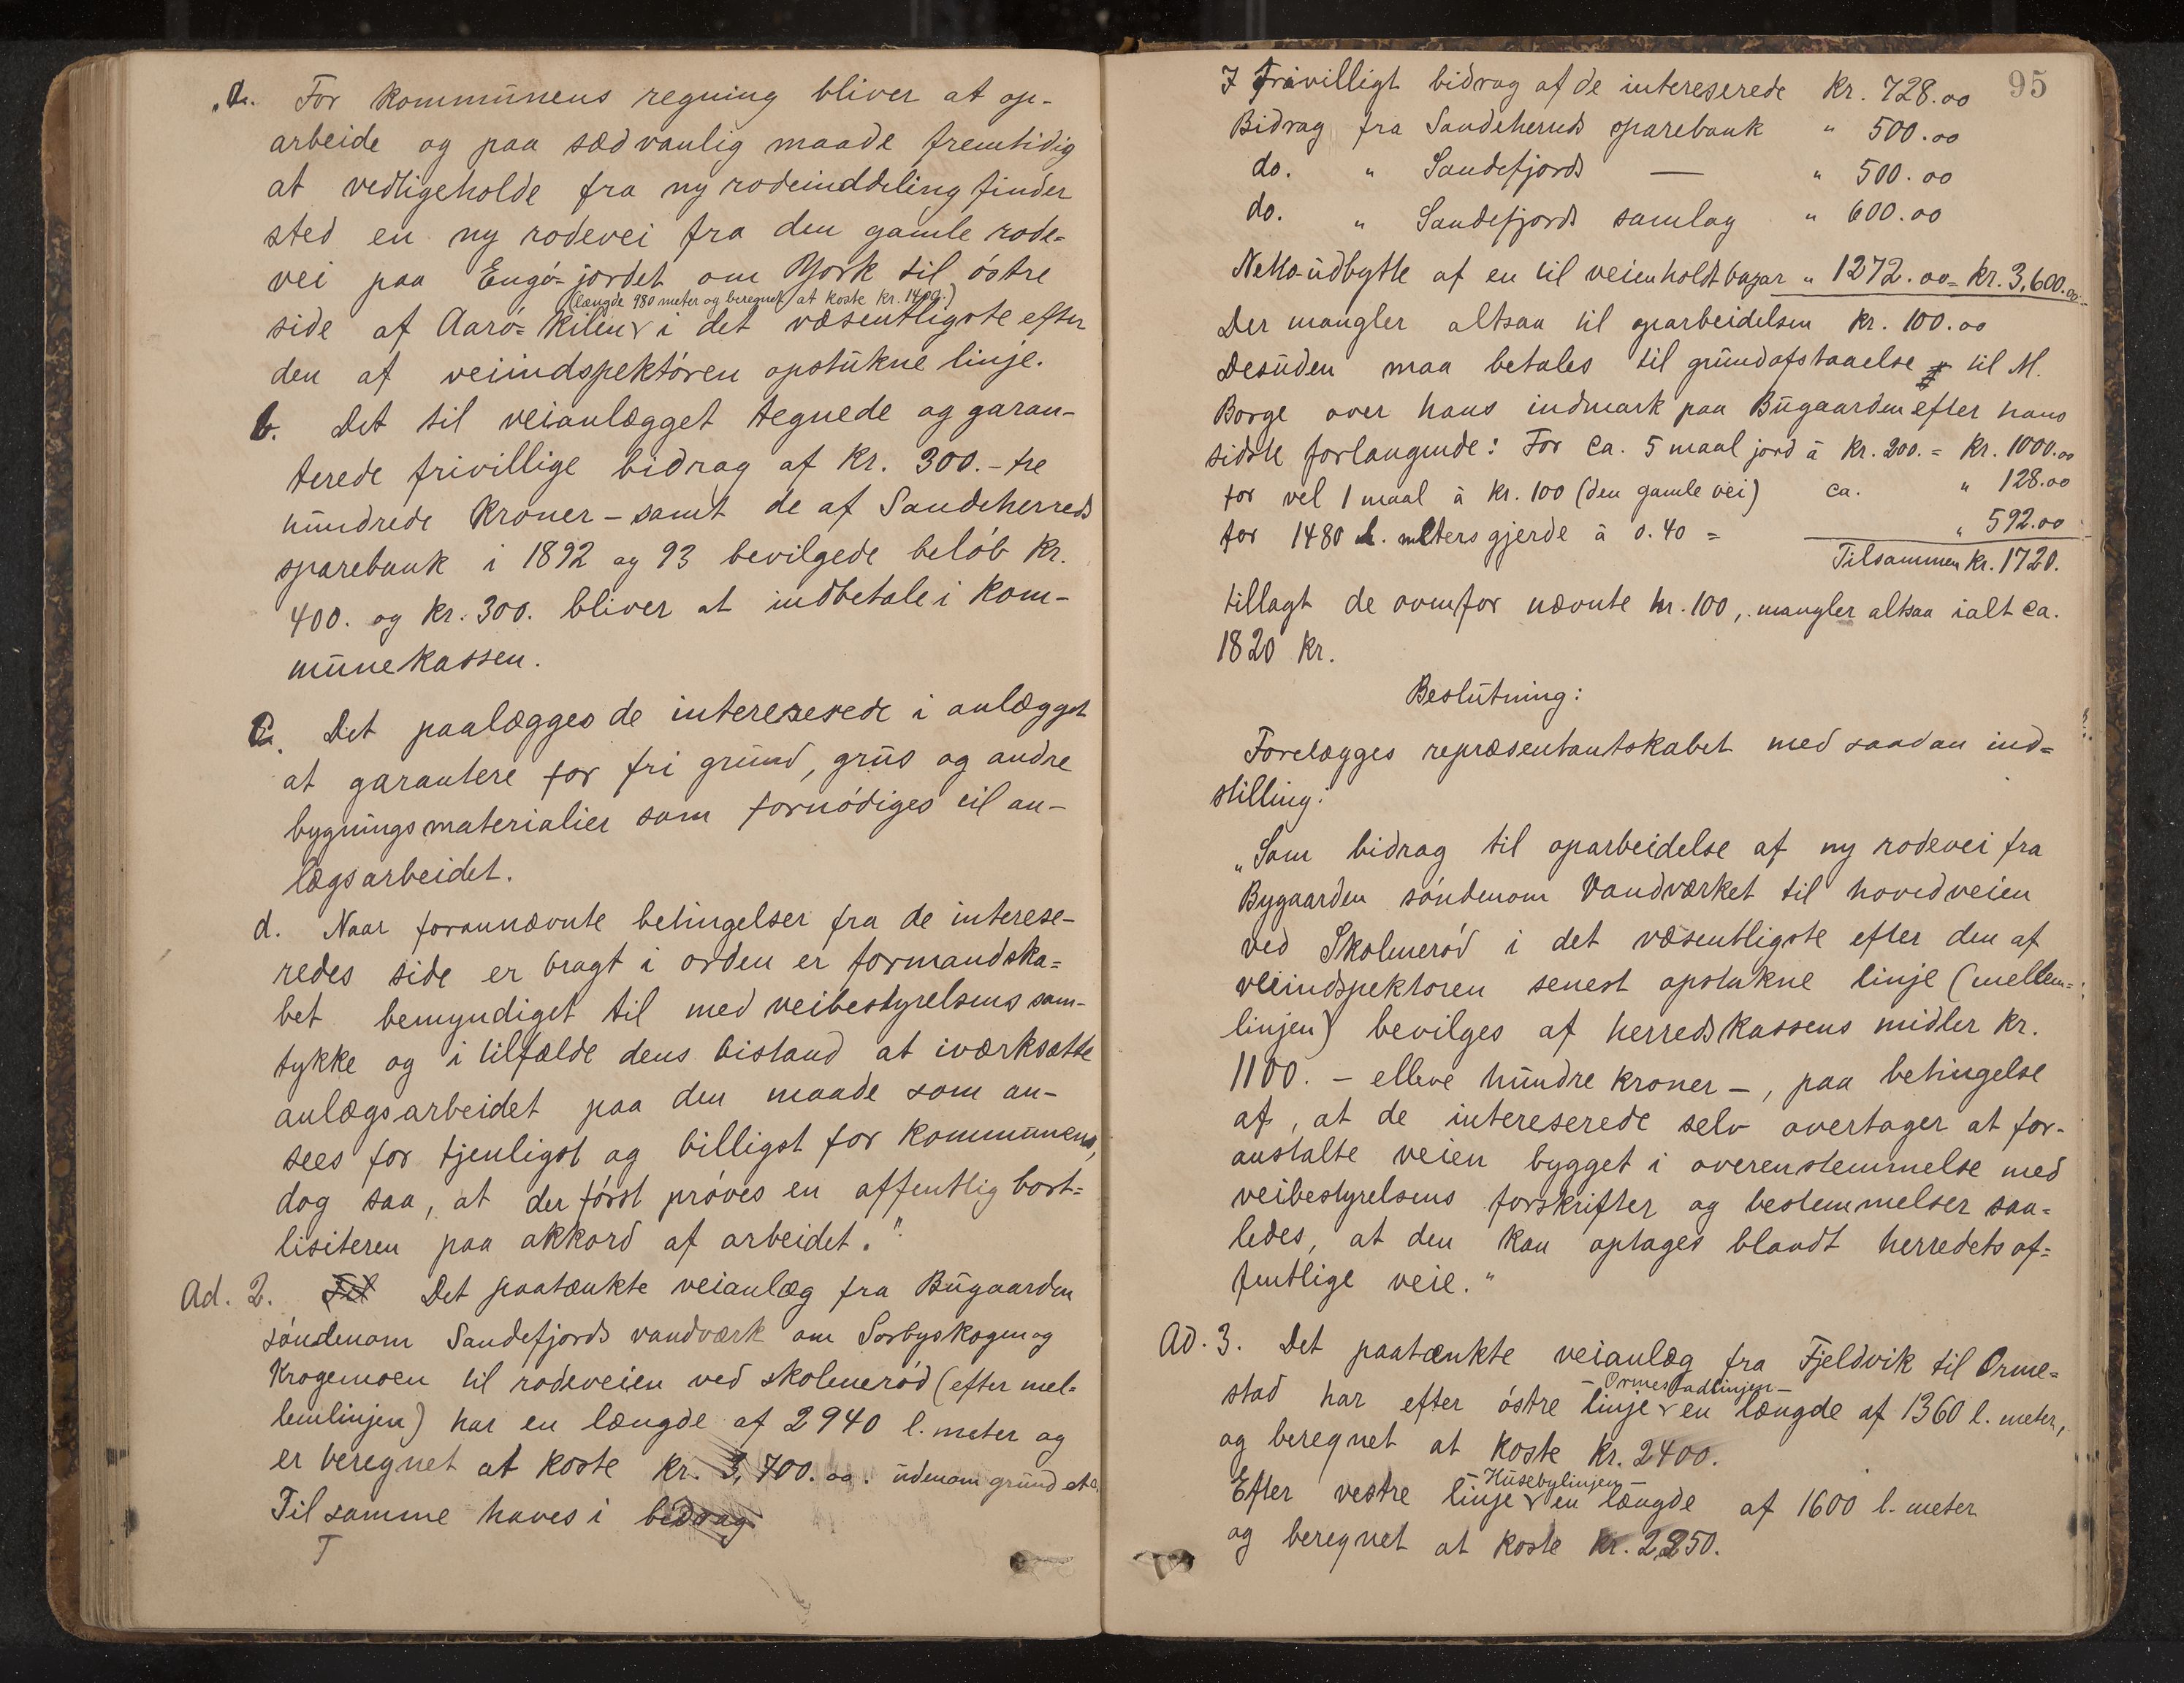 „a. For kommunens regning bliver at op-
arbeide og paa sædvanlig maade fremtidig
at vedligeholde fra ny rodeinddeling finder
sted en ny rodevei fra den gamle rode=
vei paa Engö-jordet om York til östre
(længde 980 meter og beregnet at koste kr. 1400.)
side af Aarö=kilen i det væsentligste efter
den af veiindspektören opstukne linje.
b. Det til veianlægget tegnede og garan-
terede frivillige bidrag af kr. 300.- tre
hundrede kroner - samt de af Sandeherreds
sparebank i 1892 og 93 bevilgede belöb kr.
400. og kr. 300. bliver at indbetale i kom-
munekassen.
c. Det paalægges de interesserede i anlægget
at garantere for fri grund, grus og andre
bygningsmaterialier som fornödiges til an-
lægsarbeidet.
d. Naar forannævnte betingelser fra de interese-
redes side er bragt i orden er formandska=
bet bemyndiget til med veibestyrelsens sam-
tykke og i tilfælde dens bistand at iværksætte
anlægsarbeidet paa den maade som an-
sees for tjenligst og billigst for kommunens,
dog saa, at der först pröves en offentlig bort=
lisiteren paa akkord af arbeidet."
Ad. 2. Det paatænkte veianlæg fra Bugaarden
söndenom Sandefjords vandværk om Sorbyskogen og
Krogemoen til rodeveien ved Skolmeröd (efter mel=
lemlinjen) har en længde af 2940 l. meter og
er beregnet at koste kr. 3,700.00. udenom grund etc.
Til samme haves i bidrag
95
I frivilligt bidrag af de intereserede kr. 728.00
Bidrag fra Sandeherreds sparebank " 500.00
do. " Sandefjords — " 500.00
do. " Sandefjords samlag " 600.00
Netto udbytte af en til veien holdt bazar " 1272.00 = kr. 3,600.00
Der mangler altsaa til oparbeidelsen kr. 100.00
Desuden maa betales til grundafstaaelse til M.
Borge over hans indmark paa Bugaarden efter hans
sidste forlangende: For ca. 5 maal jord à kr. 200. = kr. 1000.00
for vel 1 maal à kr. 100 (den gamle vei) ca. " 128.00
for 1480 l. meters gjerde à 0.40 = " 592.00
Tilsammen kr. 1720.
tillagt de ovenfor nævnte kr. 100, mangler altsaa ialt ca.
1820 kr.
Beslutning:
Forelægges repræsentantskabet med saadan ind=
stilling:
„Som bidrag til oparbeidelse af ny rodevei fra
Bygaarden söndenom Vandværket til hovedveien
ved Skolmeröd i det væsentligste efter den af
veiindspektoren senest opstukne linje (mellem=
linjen) bevilges af herredskassens midler kr.
1100. - elleve hundre kroner -, paa betingelse
af, at de intereserede selv overtager at for-
anstalte veien bygget i overenstemmelse med
veibestyrelsens forskrifter og bestemmelser saa=
ledes, at den kan optages blandt herredets of=
fentlige veie."
Ad. 3. Det paatænkte veianlæg fra Fjeldvik til Orme=
- Ormestadlinjen -
stad har efter östre linje en længde af 1360 l. meter,
og beregnet at koste kr. 2400.
- Husebylinjen -
Efter vestre linje en længde af 1600 l. meter
og beregnet at koste kr. 2250.